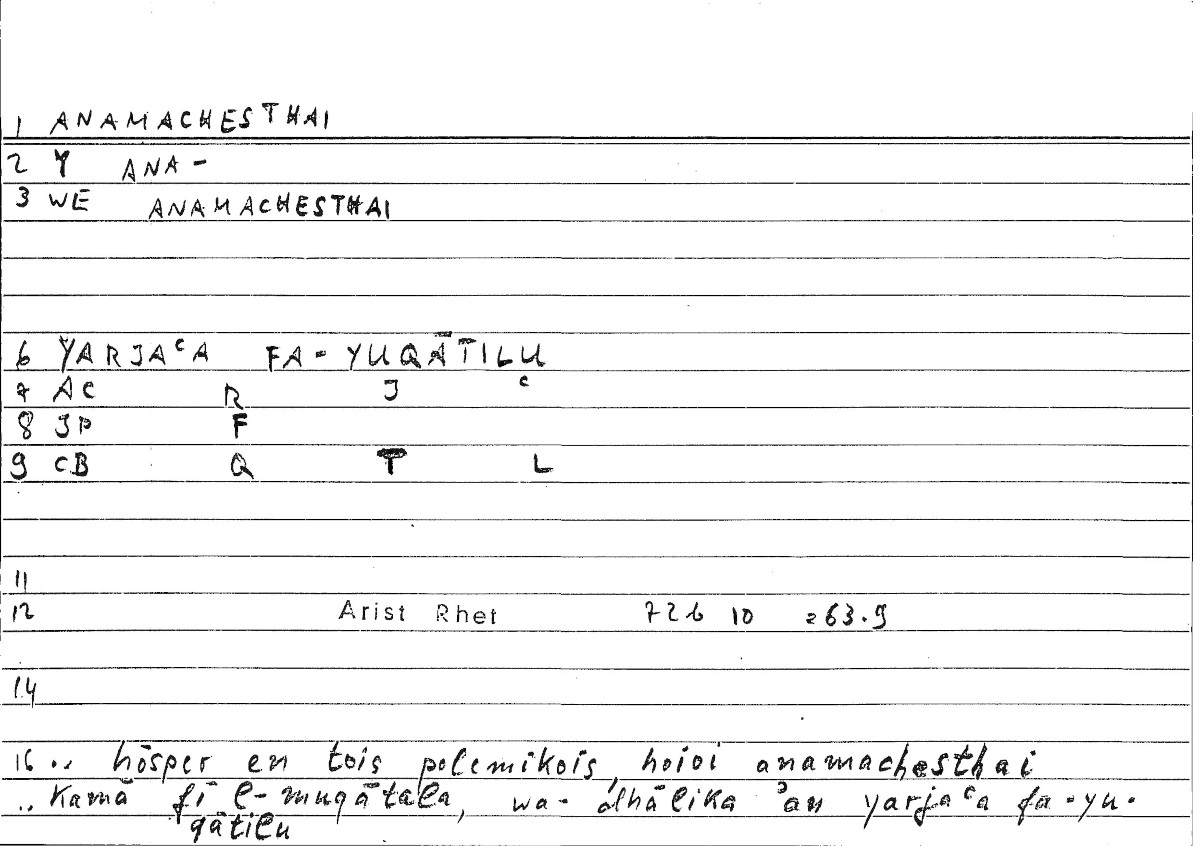 1 ANAMACHESTHAI
2 Y ANA-
3 WE ANAMACHESTHAI
6 YARJAᶜA FA-YUQĀTILU
7 AC R J ᶜ
8 JP F
9 CB Q T L
11
12 Arist Rhet 72b 10 =63.9
14
16 .. hōsper en tois polemikois, hoioi anamachesthai
.. kamā fī l-muqātala, wa-dhālika ʾan yarjaᶜa fa-yu-
qātilu